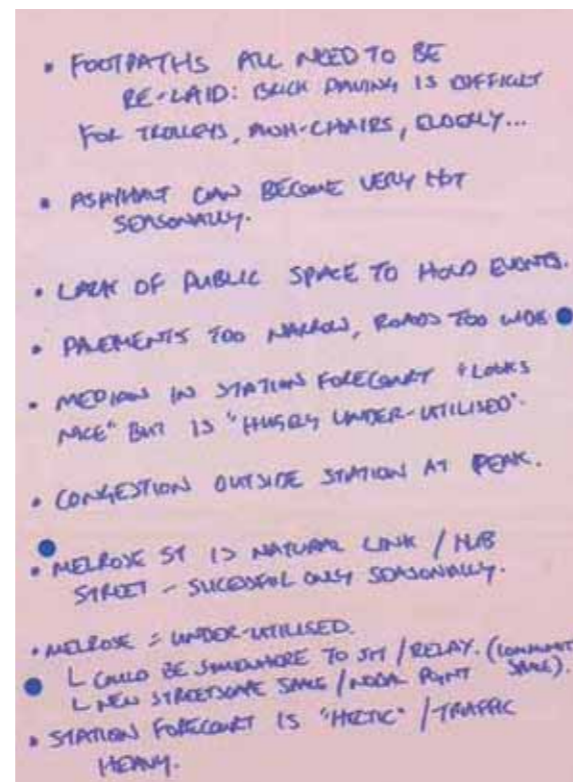 • FOOTPATHS ALL NEED TO BE
RE-LAID: BRICK PAVING IS DIFFICULT
FOR TROLLEYS, PUSH-CHAIRS, ELDERLY...
• ASPHALT CAN BECOME VERY HOT
SEASONALLY.
• LACK OF PUBLIC SPACE TO HOLD EVENTS.
• PAVEMENTS TOO NARROW, ROADS TOO WIDE
• MEDIAN IN STATION FORECOURT "LOOKS
NICE" BUT IS "HUGELY UNDER-UTILISED".
• CONGESTION OUTSIDE STATION AT PEAK.
• MELROSE ST IS NATURAL LINK / HUB
STREET – SUCESSFUL ONLY SEASONALLY.
• MELROSE = UNDER-UTILISED.
L COULD BE SOMEWHERE TO SIT / RELAX. (COMMUNITY
L NEW STREETSCAPE SPACE / NODAL POINT SPACE).
• STATION FORECOURT IS "HECTIC" / TRAFFIC
HEAVY.